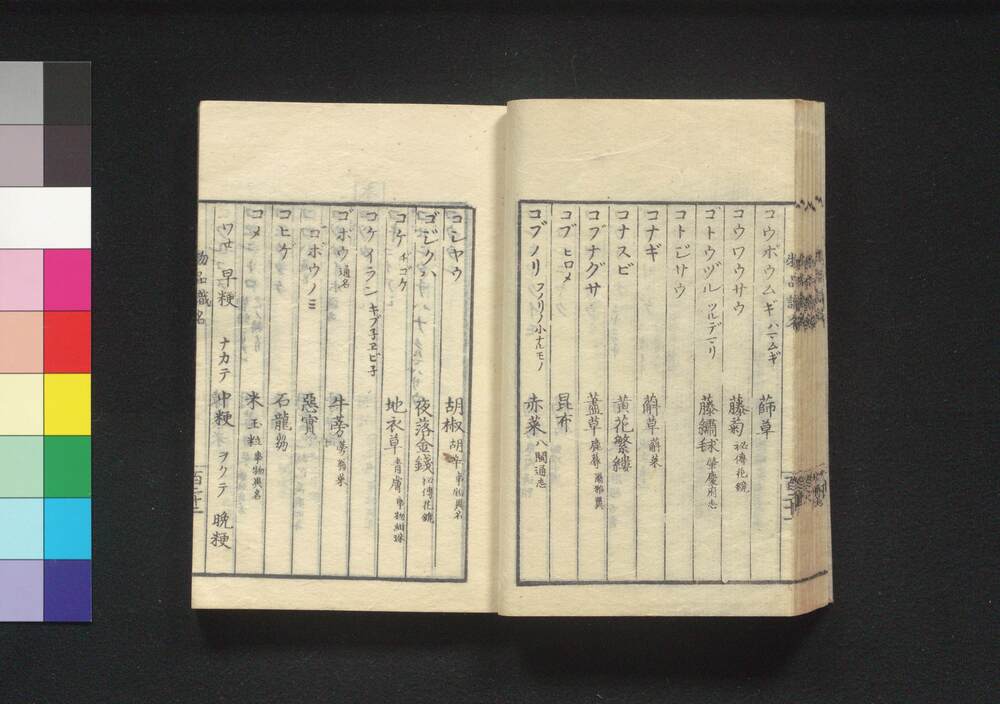 コウボウムギ ハマムギ 篩草
コウワウサウ 藤菊 秘傳花鏡
ゴトウヅル ツルデマリ 藤繡毬 肇慶府志
コトジサウ
コナギ 蔛草 蔛菜
コナスビ 黄花繁縷
コブナグサ 藎草
コブ ヒロメ 昆布
コブノリ フノリノ小ナルモノ 赤菜 八閩通志
コシヤウ 胡椒 事物異名
ゴジクハ 夜落金錢 秘傳花鏡
コケ ヂゴケ 地衣草 青膚 事物紺珠
コケイラン キブ子ヱビ子
ゴボウ 通名 牛蒡 蒡翁菜
ゴボウノミ 惡實
コヒゲ 石龍芻
コメ 米 玉粒 事物異名
ワセ 早粳 ナカテ 中粳 ヲクテ 晩粳
物品識名